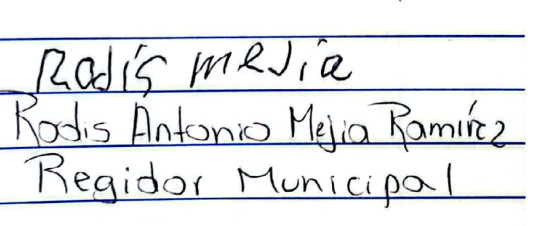 Rodís mejia
Rodis Antonio Mejia Ramírez
Regidor Municipal